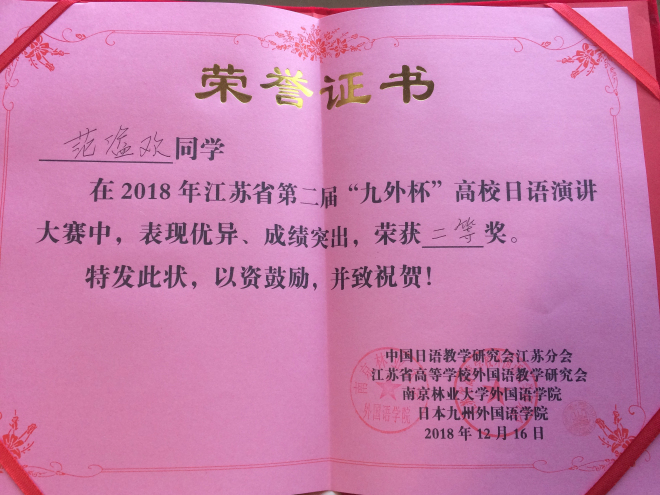 荣誉证书
范滢欢同学
在2018年江苏省第二届“九外杯”高校日语演讲
大赛中，表现优异、成绩突出，荣获二等奖。
特发此状，以资鼓励，并致祝贺！
中国日语教学研究会江苏分会
江苏省高等学校外国语教学研究会
南京林业大学外国语学院
日本九州外国语学院
2018年12月16日
外国语学院